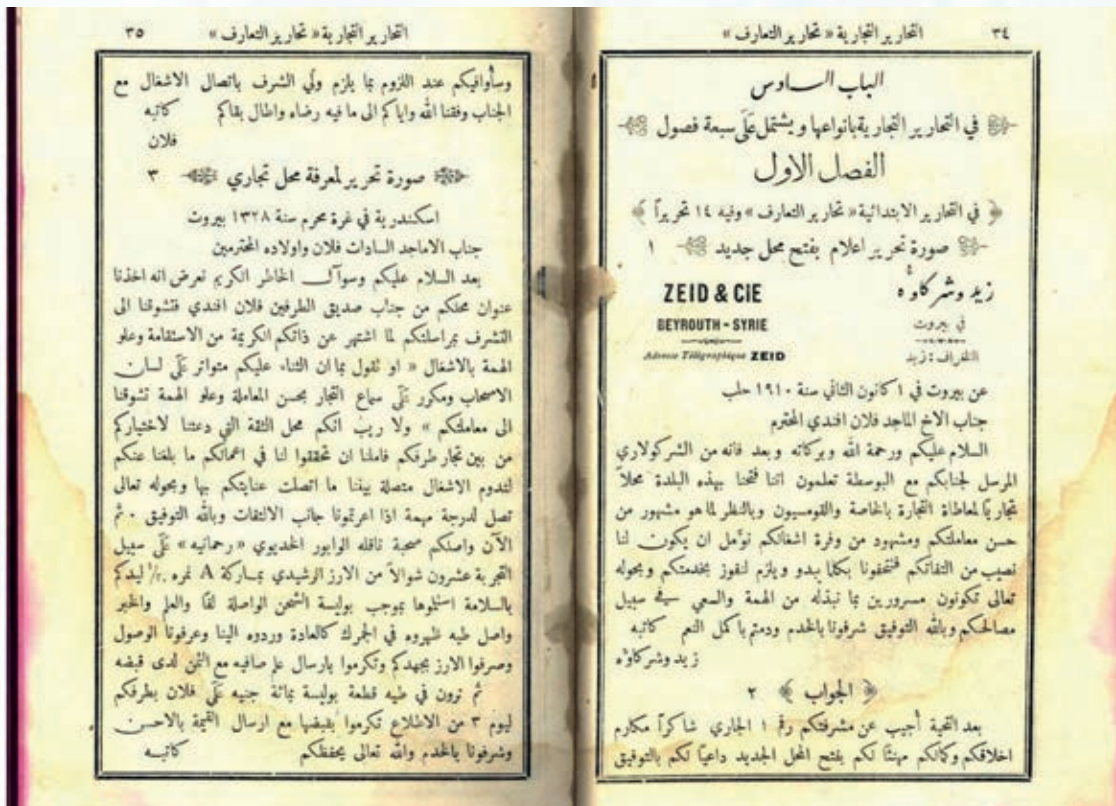 ٣٤ التحارير التجارية «تحارير التعارف»
الباب السادس
في التحارير التجارية بانواعها ويشتمل عَلَى سبعة فصول
الفصل الاول
﴿ في التحارير الابتدائية «تحارير التعارف» وفيه ١٤ تحريراً ﴾
صورة تحرير اعلام بفتح محل جديد ١
زيد وشركاؤه
في بيروت
التلغراف: زيد
ZEID & CIE
BEYROUTH - SYRIE
Adresse Télégraphique ZEID
عن بيروت في ١ كانون الثاني سنة ١٩١٠ حلب
جناب الاخ الماجد فلان افندي المحترم
السلام عليكم ورحمة الله وبركاته وبعد فانه من الشركولاري
المرسل لجنابكم مع البوسطة تعلمون اننا فتحنا بهذه البلدة محلاً
تجارياً لمعاطاة التجارة بالخاصة والقومسيون وبالنظر لما هو مشهور من
حسن معاملتكم ومشهود من وفرة اشغالكم نؤمل ان يكون لنا
نصيب من التفاتكم فتتحفونا بكلما يبدو ويلزم لنفوز بخدمتكم وبحوله
تعالى تكونون مسرورين بما نبذله من الهمة والسعي في سبيل
مصالحكم وبالله التوفيق شرفونا بالخدم ودمتم باكمل النعم كاتبه
زيد وشركاؤه
﴿ الجواب ﴾ ٢
بعد التحية أجيب عن مشرفتكم رقم ١ الجاري شاكراً مكارم
اخلاقكم وكمالكم مهنئاً لكم بفتح المحل الجديد داعياً لكم بالتوفيق
التحارير التجارية «تحارير التعارف» ٣٥
وسأوافيكم عند اللزوم بما يلزم ولي الشرف باتصال الاشغال مع
الجناب وفقنا الله واياكم الى ما فيه رضاه واطال بقاكم كاتبه
فلان
صورة تحرير لمعرفة محل تجاري ٣
اسكندرية في غرة محرم سنة ١٣٢٨ بيروت
جناب الاماجد السادات فلان واولاده المحترمين
بعد السلام عليكم وسوآل الخاطر الكريم نعرض انه اخذنا
عنوان محلكم من جناب صديق الطرفين فلان افندي فتشوقنا الى
التشرف بمراسلتكم لما اشتهر عن ذاتكم الكريمة من الاستقامة وعلو
الهمة بالاشغال «او نقول بما ان الثناء عليكم متواتر عَلَى لسان
الاصحاب ومكرر عَلَى سماع التجار بحسن المعاملة وعلو الهمة تشوقنا
الى معاملتكم» ولا ريب انكم محل الثقة التي دعتنا لاختياركم
من بين تجار طرفكم فاملنا ان تحققوا لنا في اعمالكم ما بلغنا عنكم
لتدوم الاشغال متصلة بيننا ما اتصلت عنايتكم بها وبحوله تعالى
تصل لدرجة مهمة اذا اعرتمونا جانب الالتفات وبالله التوفيق . ثم
الآن واصلكم صحبة ناقله الوابور الخديوي «رحمانيه» عَلَى سبيل
التجربة عشرون شوالاً من الارز الرشيدي بماركة A نمره ليدكم
بالسلامة استلوها بموجب بوليسة الشحن الواصلة لفاً والعلم والخبر
واصل طيه ظهروه في الجمرك كالعادة وردوه الينا وعرفونا الوصول
وصرفوا الارز بجهدكم وتكرموا بارسال علم صافيه مع الثمن لدى قبضه
ثم ترون في طيه قطعة بوليسة بمائة جنيه عَلَى فلان بطرفكم
ليوم ٣ من الاطلاع تكرموا بقبضها مع ارسال القيمة بالاحسن
وشرفونا بالخدم والله تعالى يحفظكم كاتبه